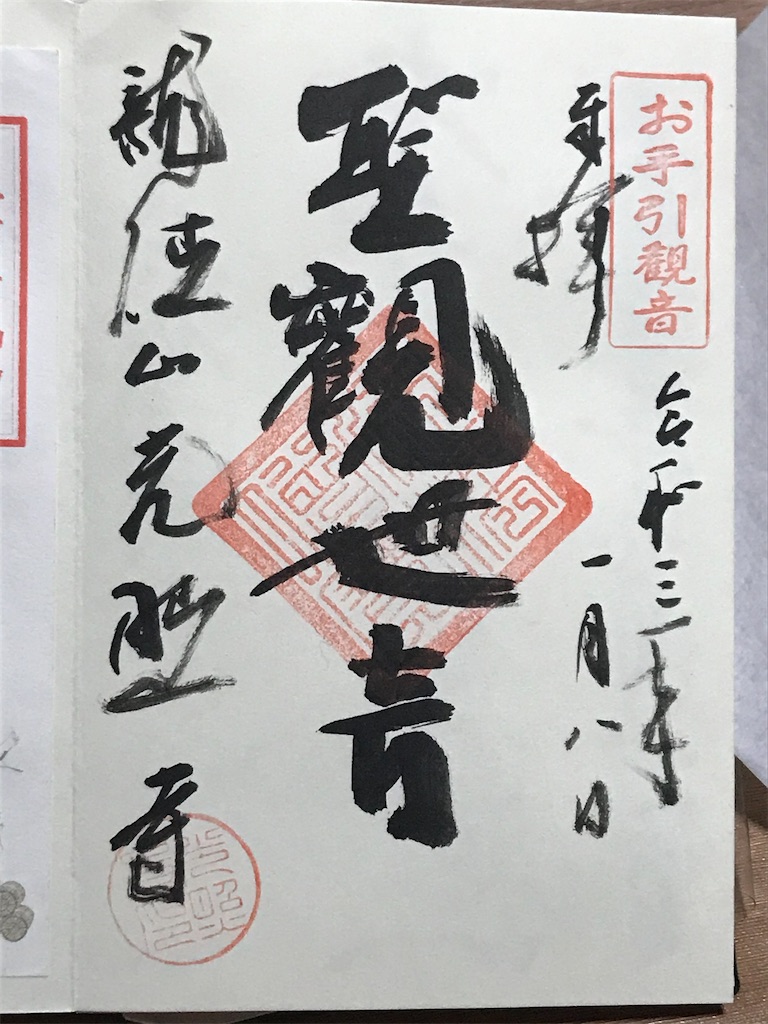 お手引観音
奉拝
令和三年
一月八日
聖觀世音
龍徳山光照寺